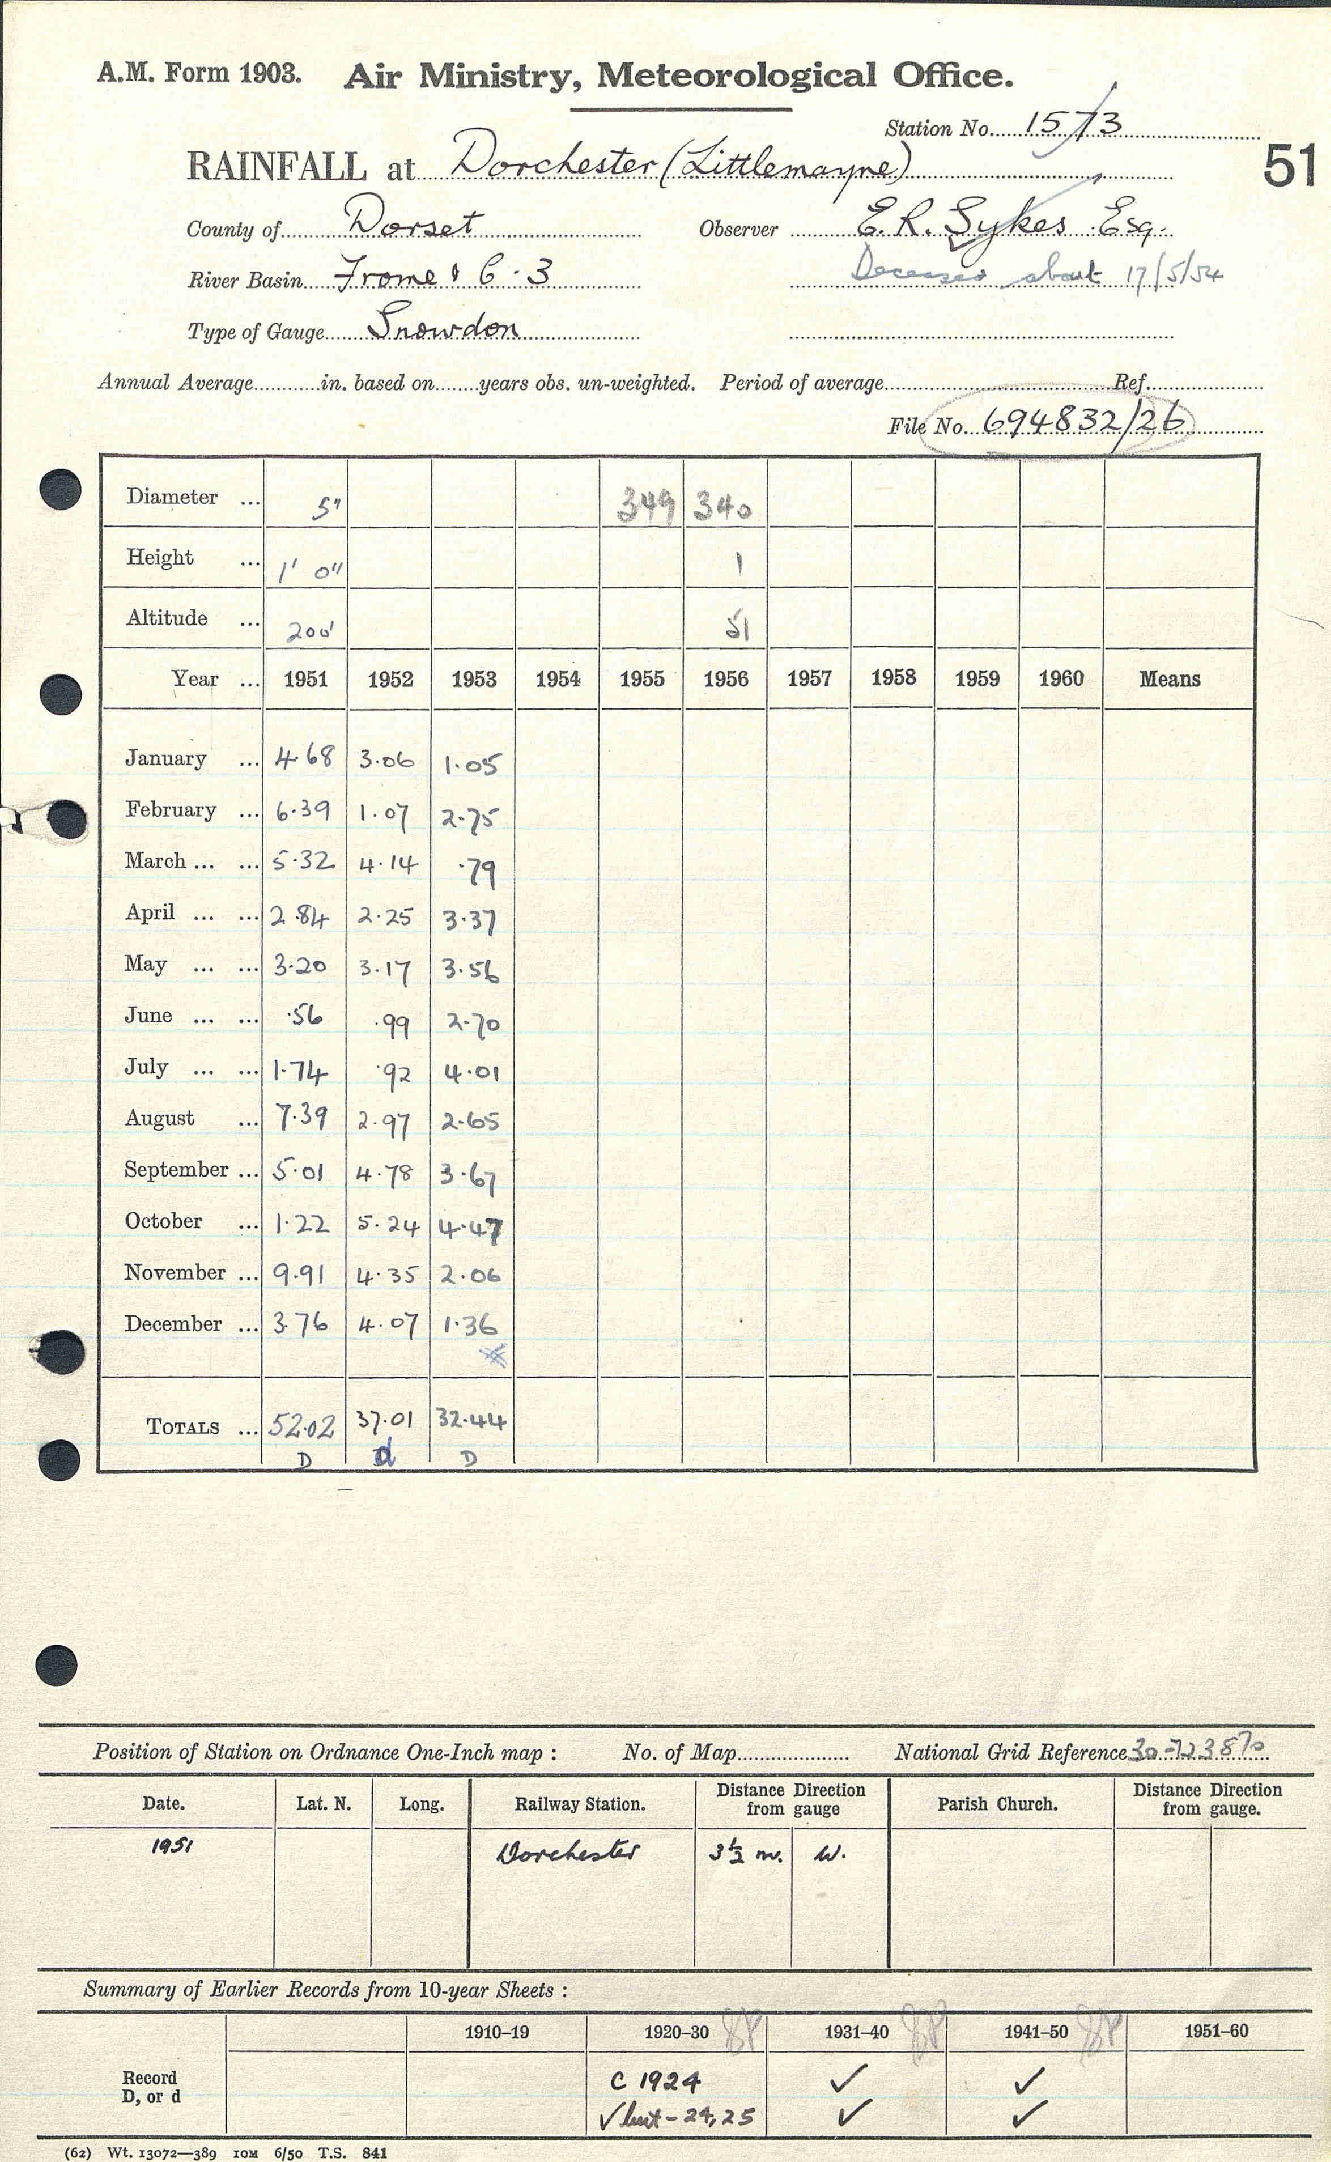 A.M. Form 1903. Air Ministry, Meteorological Office.
Station No. 1573
RAINFALL at Dorchester (Littlemayne) 51
County of Dorset Observer E.R. Sykes Esq.
River Basin Frome & C.3 Deceased about 17/5/54
Type of Gauge Snowdon
Annual Average in. based on years obs. un-weighted. Period of average Ref.
File No. 694832/26
Diameter ... 5" 349 340
Height ... 1' 0" 1
Altitude ... 200' 51
Year ... 1951 1952 1953 1954 1955 1956 1957 1958 1959 1960 Means
January ... 4.68 3.06 1.05
February ... 6.39 1.07 2.75
March ... ... 5.32 4.14 .79
April ... ... 2.84 2.25 3.37
May ... ... 3.20 3.17 3.56
June ... ... .56 .99 2.70
July ... ... 1.74 .92 4.01
August ... 7.39 2.97 2.65
September ... 5.01 4.78 3.67
October ... 1.22 5.24 4.47
November ... 9.91 4.35 2.06
December ... 3.76 4.07 1.36
TOTALS ... 52.02 37.01 32.44
D d D
Position of Station on Ordnance One-Inch map : No. of Map National Grid Reference 30-723870
Date. Lat. N. Long. Railway Station. Distance Direction from gauge Parish Church. Distance Direction from gauge.
1951 Dorchester 3½ m. W.
Summary of Earlier Records from 10-year Sheets :
1910–19 1920–30 1931–40 1941–50 1951–60
Record C 1924 ✓ ✓
D, or d ✓ but - 24, 25 ✓ ✓
(62) Wt. 13072—389 10M 6/50 T.S. 841